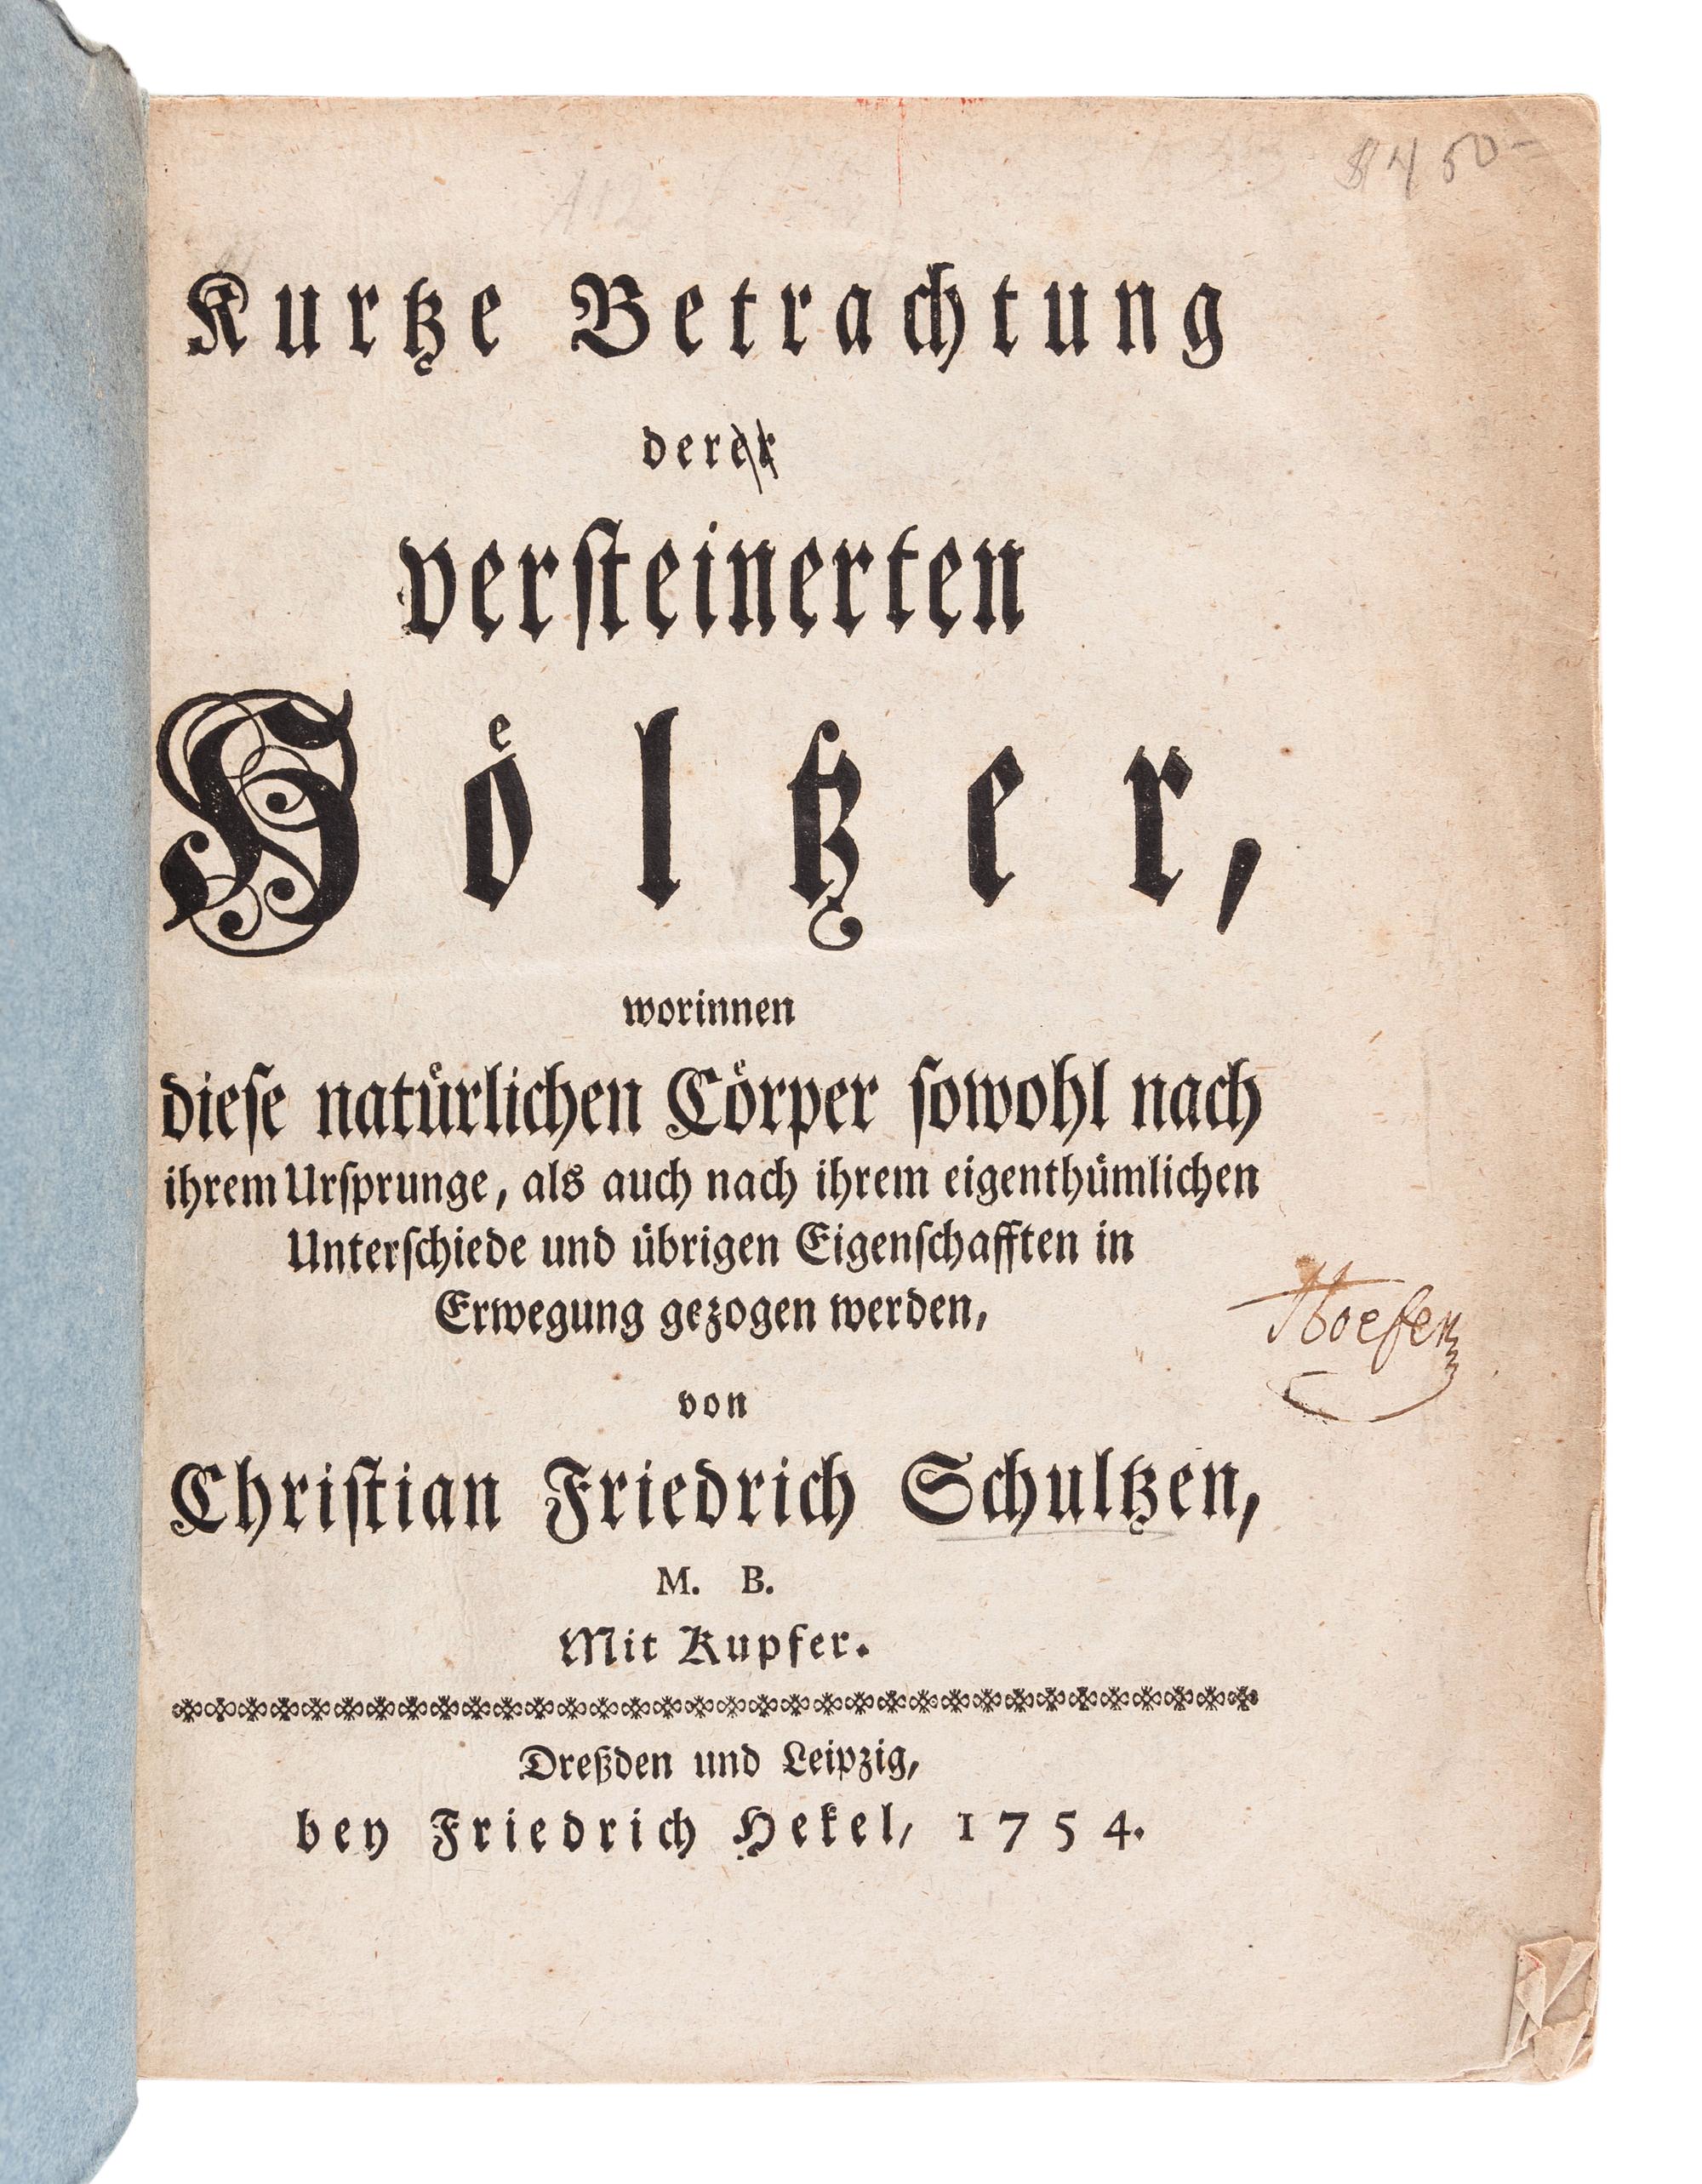 $450-
Kurtze Betrachtung
derer
versteinerten
Hoͤltzer,
worinnen
dieſe natuͤrlichen Coͤrper ſowohl nach
ihrem Urſprunge, als auch nach ihrem eigenthuͤmlichen
Unterſchiede und uͤbrigen Eigenſchafften in
Erwegung gezogen werden,
Hoefer
von
Chriſtian Friedrich Schultzen,
M. B.
Mit Kupfer.
Dreßden und Leipzig,
bey Friedrich Hekel, 1754.